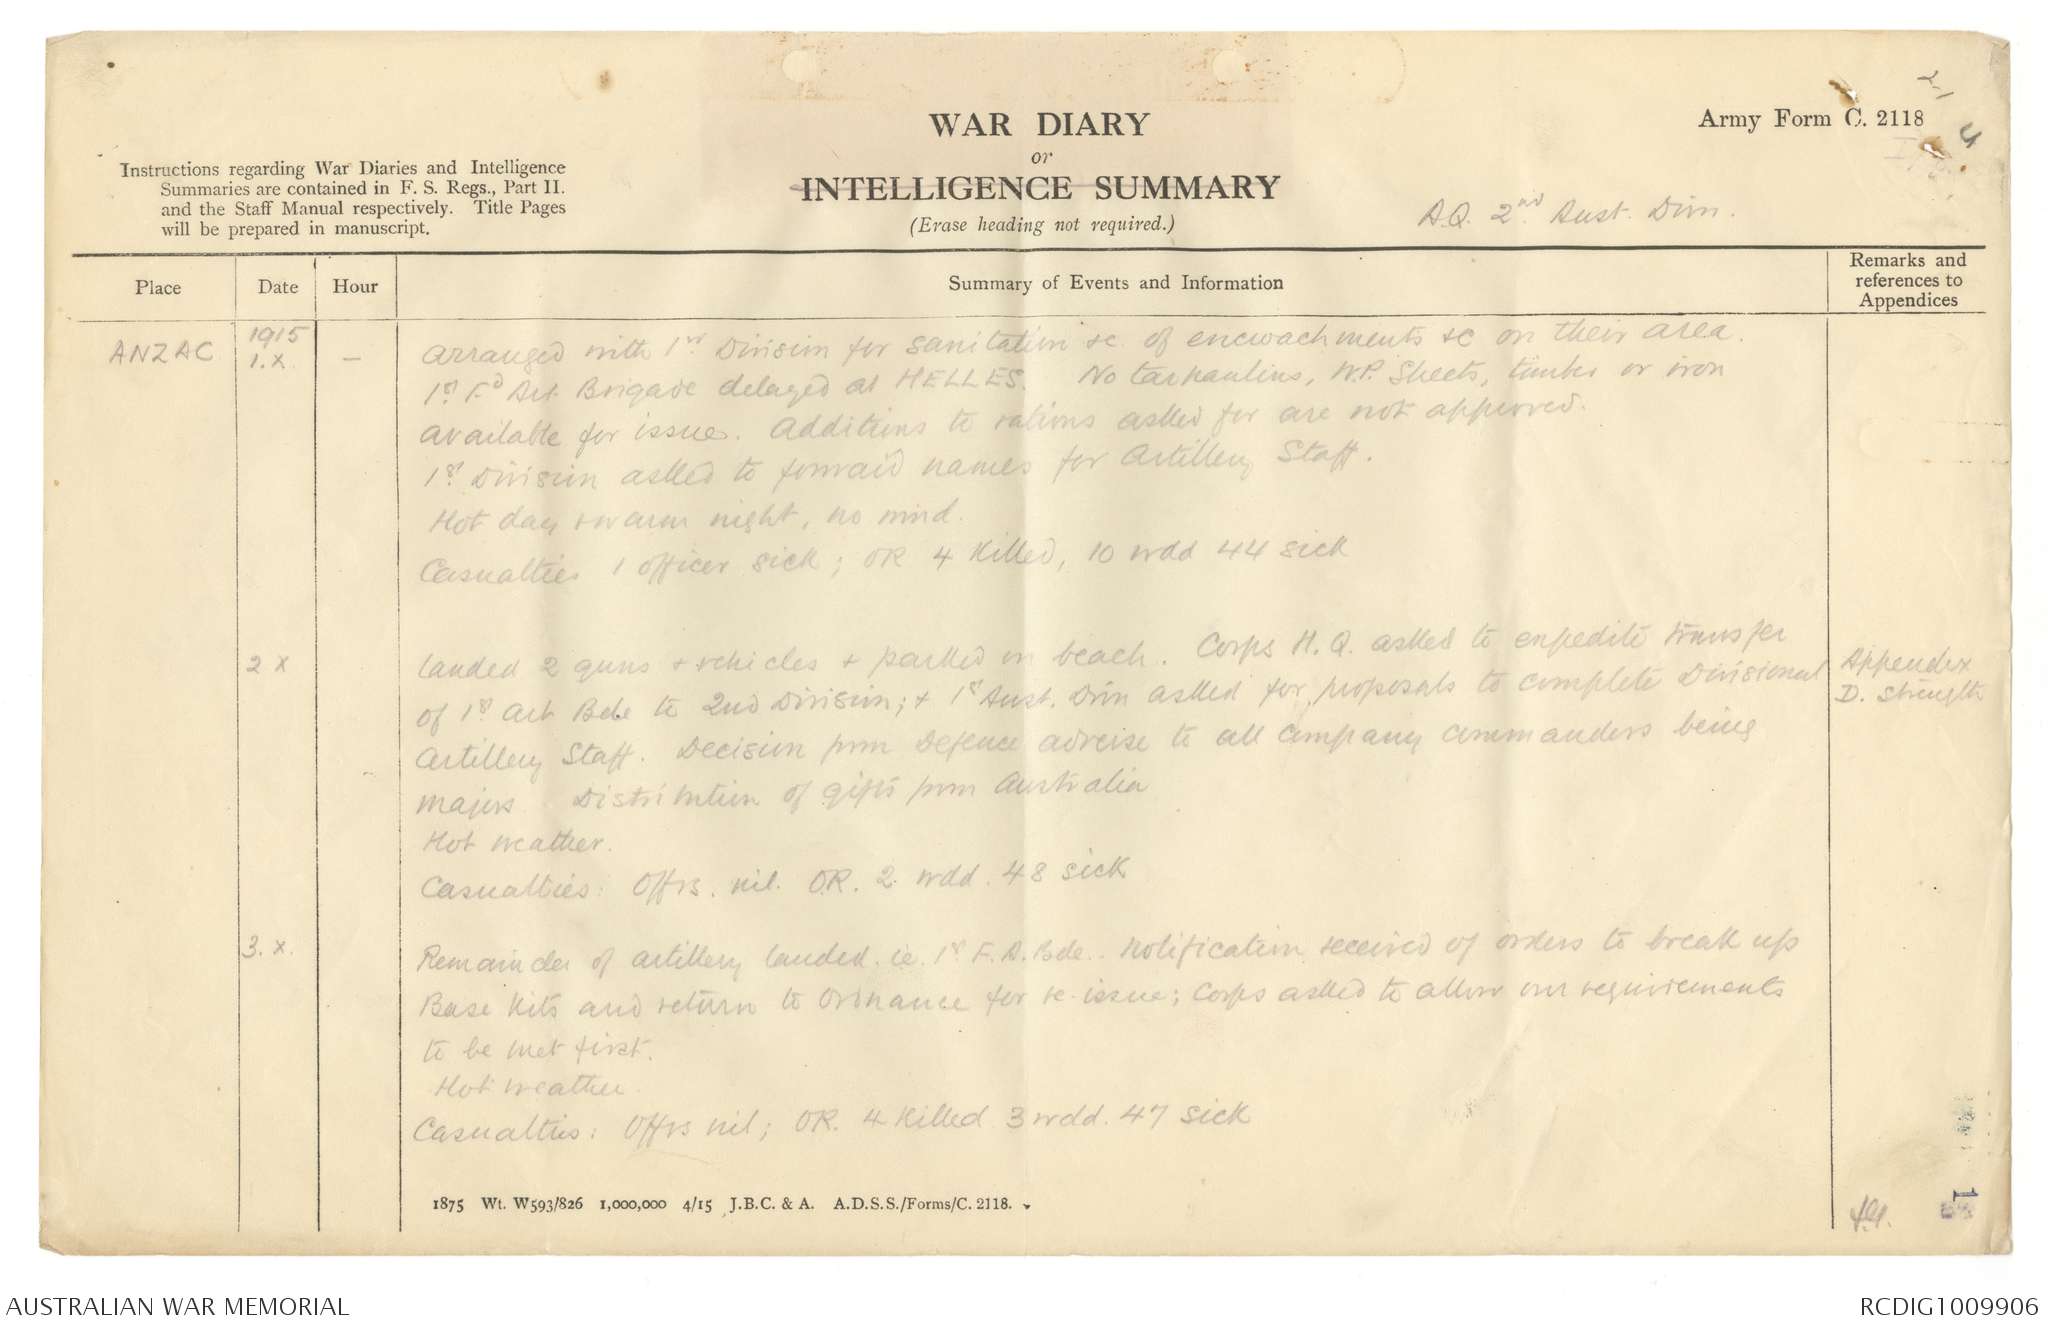 WAR DIARY
or
INTELLIGENCE SUMMARY
(Erase heading not required.)
Army Form C. 2118
Instructions regarding War Diaries and Intelligence
Summaries are contained in F. S. Regs., Part II.
and the Staff Manual respectively. Title Pages
will be prepared in manuscript.
A.Q. 2nd Aust. Divn.
Place
Date
Hour
Summary of Events and Information
Remarks and
references to
Appendices
ANZAC
1915
1.X.
—
Arranged with 1st Division for sanitation &c. of encroachments &c on their area.
1st Fd Art. Brigade delayed at HELLES. No tarpaulins, W.P. Sheets, timber or iron
available for issue. Additions to rations asked for are not approved.
1st Division asked to forward names for Artillery Staff.
Hot day & warm night, no wind.
Casualties 1 officer sick; OR 4 killed, 10 wdd 44 sick
2 X
Landed 2 guns & vehicles & parked on beach. Corps H.Q. asked to expedite transfer
of 1st Art Bde to 2nd Division; & 1st Aust. Divn asked for proposals to complete Divisional
Artillery Staff. Decision from Defence adverse to all company commanders being
majors. Distribution of gifts from Australia
Hot weather.
Casualties: Offrs. nil. OR. 2 wdd. 48 sick
Appendix
D. Strength
3. X.
Remainder of artillery landed. ie. 1st F.A. Bde. Notification received of orders to break up
Base Kits and return to Ordnance for re-issue; Corps asked to allow our requirements
to be met first.
Hot weather.
Casualties: Offrs nil; OR. 4 killed 3 wdd. 47 sick
1875 Wt. W593/826 1,000,000 4/15 J.B.C. & A. A.D.S.S./Forms/C. 2118.
AUSTRALIAN WAR MEMORIAL
RCDIG1009906